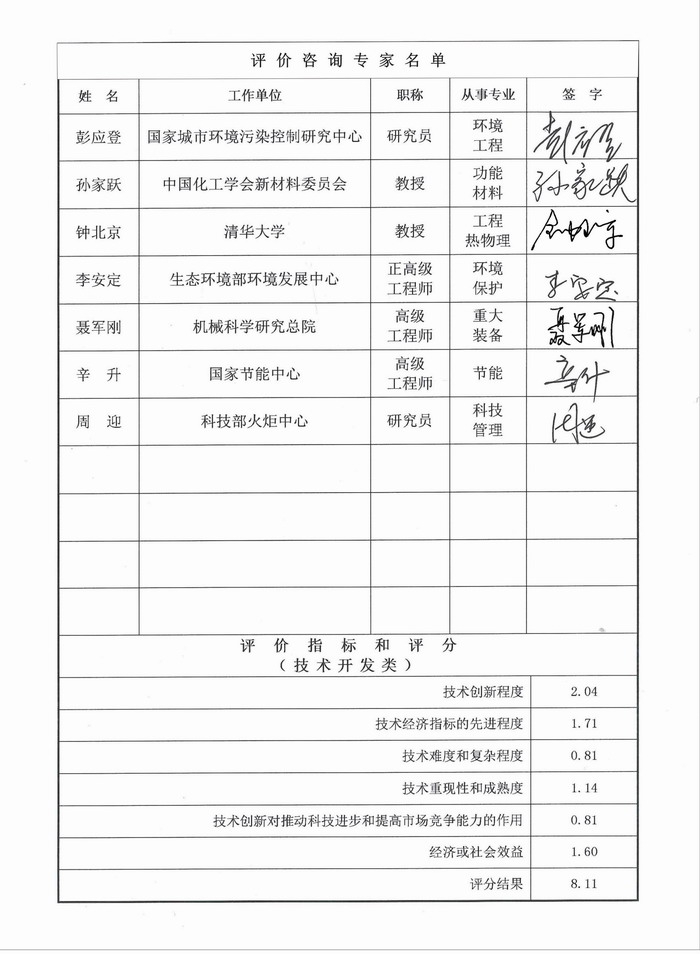 评价咨询专家名单
姓 名 工作单位 职称 从事专业 签 字
彭应登 国家城市环境污染控制研究中心 研究员 环境工程 彭应登
孙家跃 中国化工学会新材料委员会 教授 功能材料 孙家跃
钟北京 清华大学 教授 工程热物理
李安定 生态环境部环境发展中心 正高级工程师 环境保护 李安定
聂军刚 机械科学研究总院 高级工程师 重大装备 聂军刚
辛 升 国家节能中心 高级工程师 节能 辛升
周 迎 科技部火炬中心 研究员 科技管理 周迎
评价指标和评分
（技术开发类）
技术创新程度 2.04
技术经济指标的先进程度 1.71
技术难度和复杂程度 0.81
技术重现性和成熟度 1.14
技术创新对推动科技进步和提高市场竞争能力的作用 0.81
经济或社会效益 1.60
评分结果 8.11